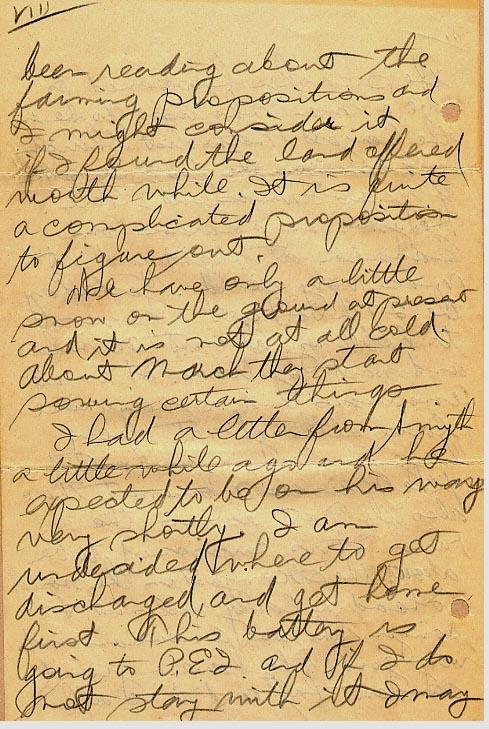 VIII
been reading about the
farming propositions and
I might consider it
if I found the land offered
worth while. It is quite
a complicated proposition
to figure out.
We have only a little
snow on the ground at present
and it is not at all cold.
About March they start
sowing certain things
I had a letter from Smyth
a little while ago and he
expected to be on his way
very shortly. I am
undecided where to get
discharged, and get home
first. This battery is
going to P.E.I. and if I do
not stay with it I may